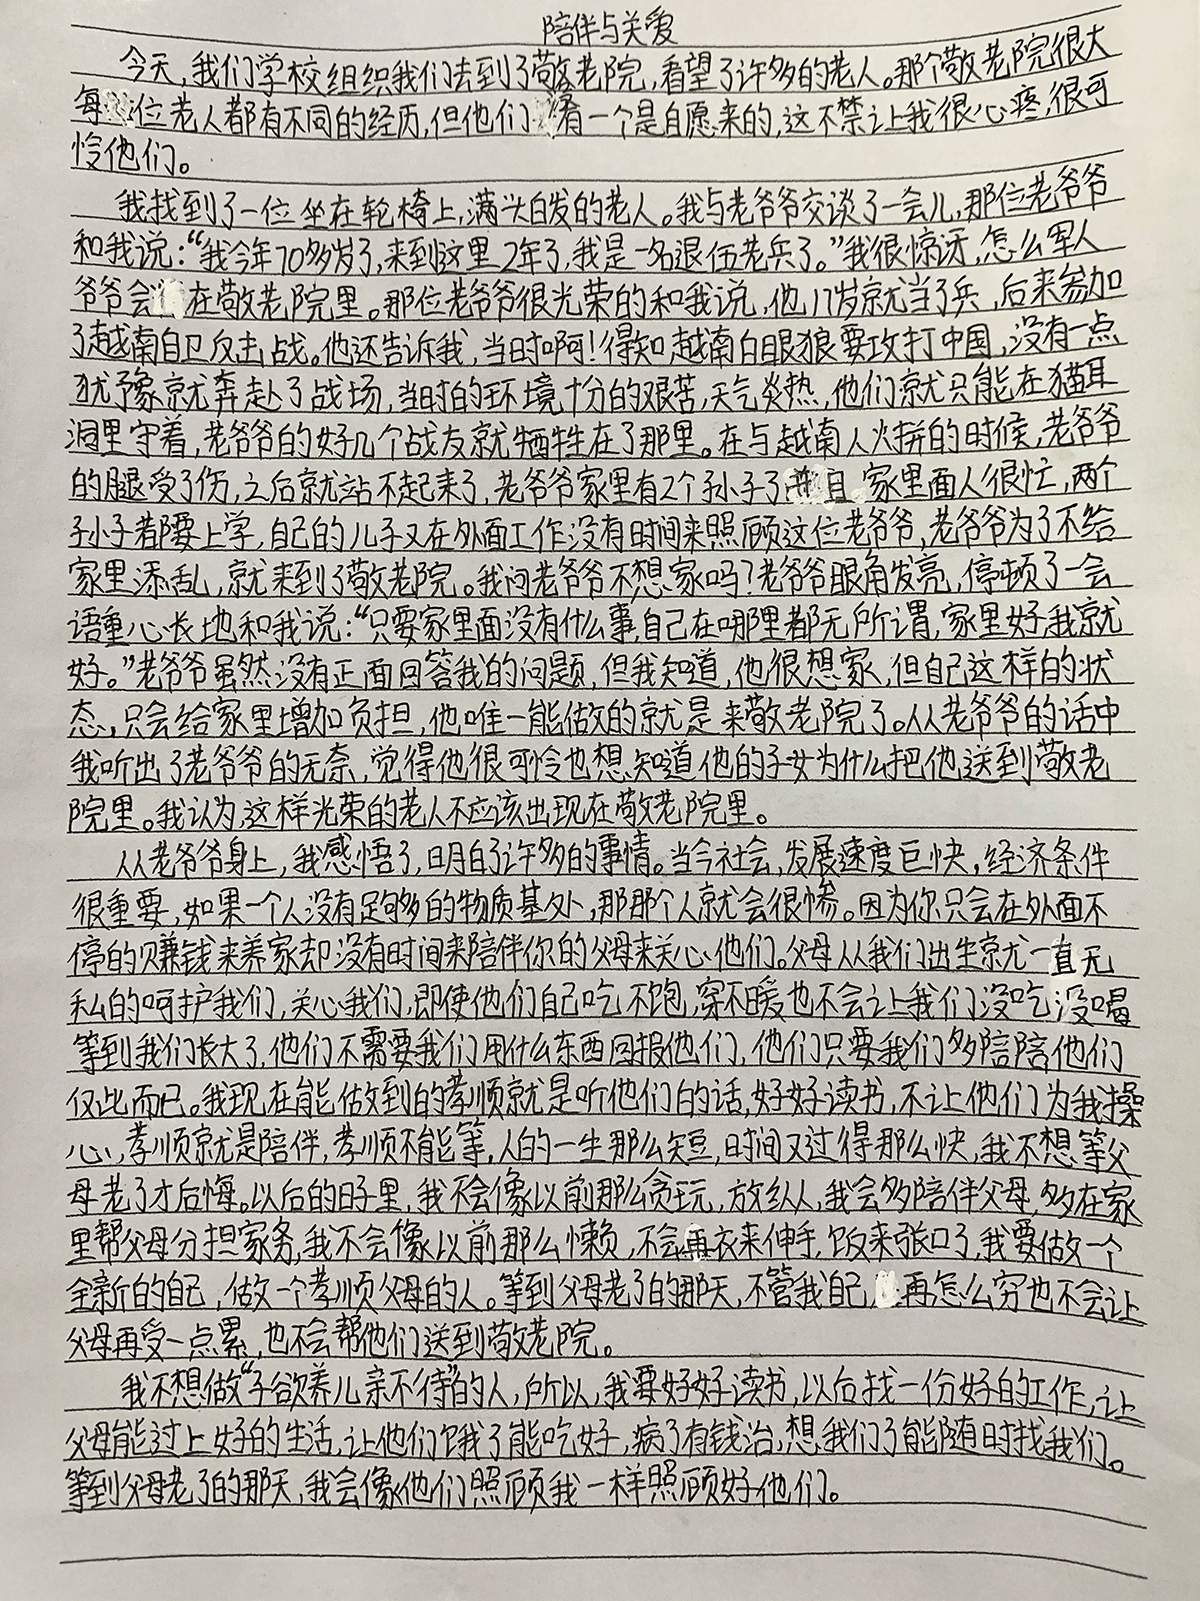 陪伴与关爱
今天,我们学校组织我们去到了敬老院,看望了许多的老人。那个敬老院很大
每位老人都有不同的经历,但他们没有一个是自愿来的,这不禁让我很心疼,很可
怜他们。
我找到了一位坐在轮椅上,满头白发的老人。我与老爷爷交谈了一会儿,那位老爷爷
和我说:“我今年70多岁了,来到这里2年了,我是一名退伍老兵了。”我很惊讶,怎么军人
爷爷会在敬老院里。那位老爷爷很光荣的和我说,他17岁就当了兵,后来参加
了越南自卫反击战。他还告诉我,当时啊!得知越南白眼狼要攻打中国,没有一点
犹予象就奔赴了战场,当时的环境十分的艰苦,天气炎热,他们就只能在猫耳
洞里守着,老爷爷的好几个战友就牺牲在了那里。在与越南人火拼的时候,老爷爷
的腿受了伤,之后就站不起来了,老爷爷家里有2个孙子了并且家里面人很忙,两个
孙子都要上学,自己的儿子又在外面工作没有时间来照顾这位老爷爷,老爷爷为了不给
家里添乱,就来到了敬老院。我问老爷爷不想家吗?老爷爷眼角发亮,停顿了一会
语重心长地和我说:“只要家里面没有什么事,自己在哪里都无所谓,家里好,我就
好。”老爷爷虽然没有正面回答我的问题,但我知道,他很想家,但自己这样的状
态,只会给家里增加负担,他唯一能做的就是来敬老院了。从老爷爷的话中
我听出了老爷爷的无奈,觉得他很可怜也想知道他的子女为什么把他送到敬老
院里。我认为,这样光荣的老人不应该出现在敬老院里。
从老爷爷身上,我感悟了,明白了许多的事情。当今社会,发展速度巨快,经济条件
很重要,如果一个人没有足够多的物质基处,那那个人就会很惨。因为你只会在外面不
停的赚钱来养家却没有时间来陪伴你的父母来关心他们。父母从我们出生就一直无
私的呵护我们,关心我们,即使他们自己吃不饱,穿不暖也不会让我们没吃没喝
等到我们长大了,他们不需要我们用什么东西回报他们,他们只要我们多陪陪他们
仅此而已。我现在能做到的孝顺就是听他们的话,好好读书,不让他们为我操
心,孝顺就是陪伴,孝顺不能等,人的一生那么短,时间又过得那么快,我不想等父
母老了才后悔。以后的日子里,我不会像以前那么贪玩,放纵,我会多陪伴父母,多在家
里帮父母分担家务,我不会像以前那么懒,不会再衣来伸手,饭来张口了,我要做一个
全新的自己,做一个孝顺父母的人。等到父母老了的那天,不管我自己再怎么穷也不会让
父母再受一点累,也不会帮他们送到敬老院。
我不想做“子欲养儿亲不待”的人,所以,我要好好读书,以后找一份好的工作,让
父母能过上好的生活,让他们饿了能吃好,病了有钱治,想我们了能随时找我们。
等到父母老了的那天,我会像他们照顾我一样照顾好他们。